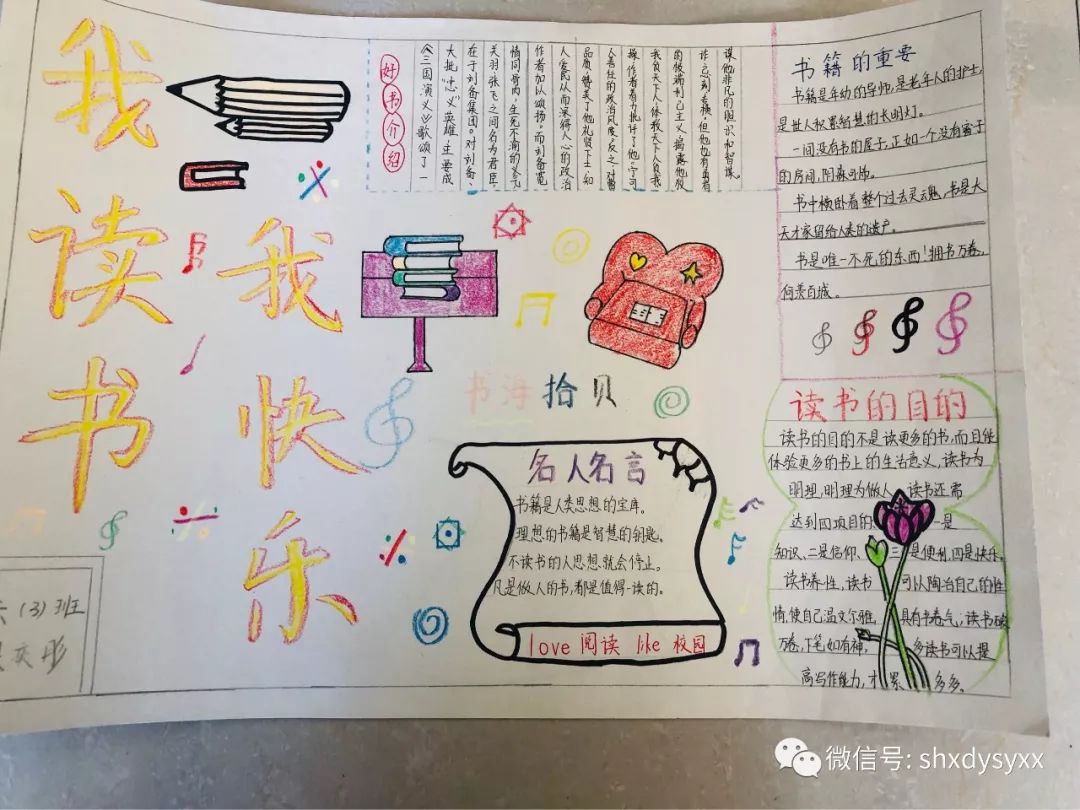 我读书
我快乐
好书介绍
《三国演义》歌颂了一
大批“忠义”英雄主要成
在于刘备集团。对刘备、
关羽张飞之间名为君臣,
情同骨肉,生死不渝的义
作者加以颂扬。而刘备宽
人爱民从而深得人心的政治
品质,赞美了他礼贤下士,知
人善任的政治风度。反之,对曹
操作者着力批计了他“宁可
我负天下人休教天下人负我
的极端利己主义,揭露他狡
诈、专横,但他也有着
谋他非凡的胆识和智谋。
书籍的重要
书籍是年幼的导师,是老年人的护士,
是世人积累智慧的长明灯。
一间没有书的屋子,正如一个没有窗子
的房间,阴森可怖。
书中横卧着整个过去灵魂,书是大
天才家留给人类的遗产。
书是唯一不死的东西!拥书万卷,
何羡百城。
书海拾贝
名人名言
书籍是人类思想的宝库。
理想的书籍是智慧的钥匙。
不读书的人思想就会停止。
凡是做人的书,都是值得一读的。
love 阅读 like 校园
读书的目的
读书的目的不是读更多的书,而且能
体验更多的书上的生活意义,读书为
明理,明理为做人 读书还需
达到四项目的 一是
知识、二是信仰、三是便利,四是快乐。
读书养性,读书 可以陶冶自己的性
情,使自己温文尔雅, 具有书卷气;读书破
万卷,下笔如有神, 多读书可以提
高写作能力,才 累 多多。
六(3)班
文彤
微信号: shxdysyxx